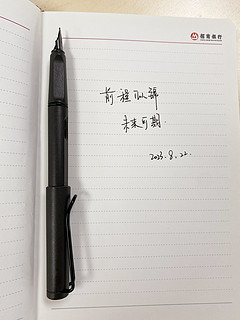 招商银行
前程似錦
未来可期.
2023.8.22.